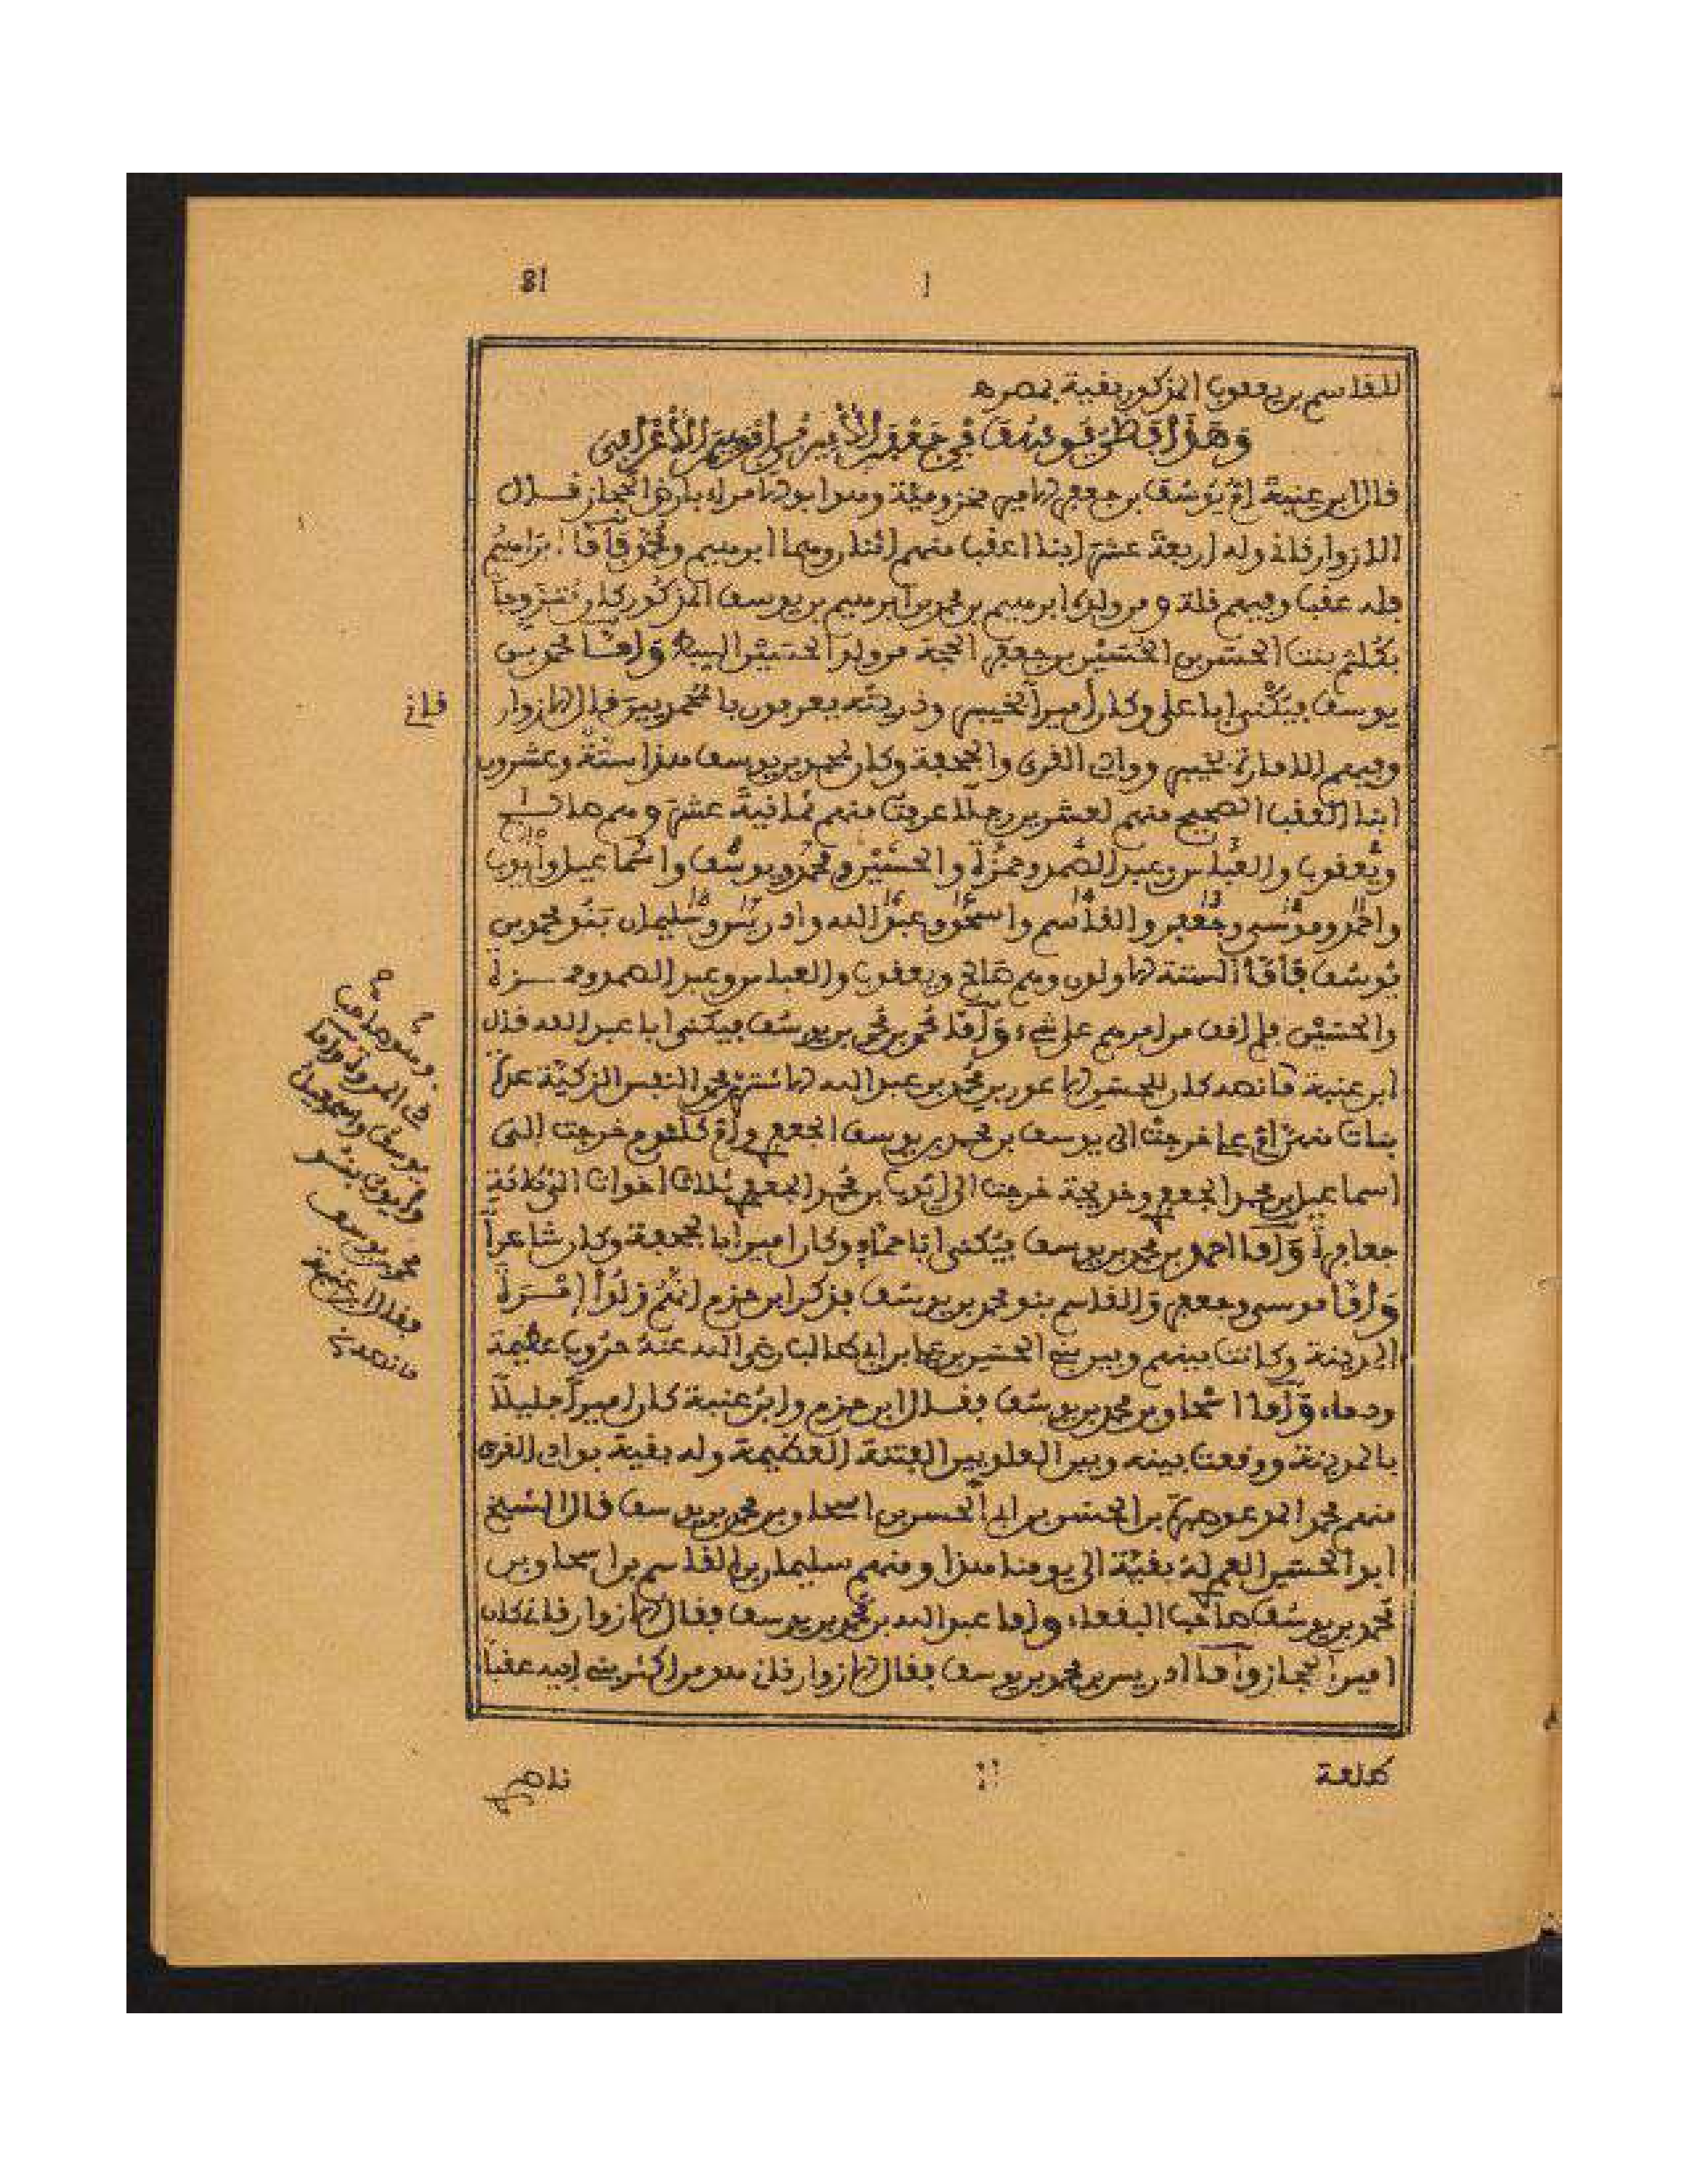 81
1
للقاسم بن يعقوب المذكور بقية بمصر ه
وهذا فصل يوسف بن جعفر الأمير بن إبراهيم الأعرابي
قال ابن عنبة أم يوسف بن جعفر الامير مخزومية وهو ابو الامراء بارض الحجاز قال
الازوارقاني وله اربعة عشر ابنا اعقب منهم اثنان وهما ابراهيم ومحمد فأما ابراهيم
فله عقب وفيهم قلة ومن ولده ابراهيم بن محمد بن ابراهيم بن يوسف المذكور كان متزوجا
بكلثم بنت الحسن بن الحسين بن جعفر الحجة من ولد الحسين السبط وأما محمد بن
يوسف فيكنى ابا علي وكان أمير الخيبر وذريته يعرفون بالمحمديين قال الازوار
قاني
وفيهم الامارة بخيبر ووادي القرى والجحفة وكان لمحمد بن يوسف هذا ستة وعشرون
ابنا العقب الصحيح منهم لعشرين رجلا عرفت منهم ثمانية عشر وهم صالح
ويعقوب والعباس وعبد الصمد وحمزة والحسين ومحمد ويوسف واسماعيل وأيوب
واحمد وموسى وجعفر والقاسم واسحاق وعبد الله وادريس وسليمان بنو محمد بن
يوسف فأما الستة الاولون وهم صالح ويعقوب والعباس وعبد الصمد وحمزة
والحسين فلم اقف من امرهم على شيء وأما محمد بن محمد بن يوسف فيكنى ابا عبد الله قال
ابن عنبة ما نصه كان للحسن الاعور بن محمد بن عبد الله الاشتر بن محمد النفس الزكية عدة
بنات منهن أم علي خرجت الى يوسف بن محمد بن يوسف الجعفري وأم كلثوم خرجت الى
اسماعيل بن محمد الجعفري وخديجة خرجت الى أيوب بن محمد الجعفري ثلاث اخوات الى ثلاثة
جعافرة وأما احمد بن محمد بن يوسف فيكنى ابا حماد وكان اميرا بالجحفة وكان شاعرا
وأما موسى وجعفر والقاسم بنو محمد بن يوسف فذكر ابن حزم انهم نزلوا إمرة
المدينة وكانت بينهم وبين بني الحسين بن علي بن ابي طالب رضي الله عنه حروب عظيمة
ودماء وأما اسحاق بن محمد بن يوسف فقال ابن حزم وابن عنبة كان اميرا جليلا
بالمدينة ووقعت بينه وبين العلويين الفتنة العظيمة وله بقية بوادي القرى
منهم محمد المدعو بن الحسن بن ابي الحسن بن اسحاق بن محمد بن يوسف قال الشيخ
ابو الحسن العمري له بقية الى يومنا هذا ومنهم سليمان بن القاسم بن اسحاق بن
محمد بن يوسف صاحب البقعاء وأما عبد الله بن محمد بن يوسف فقال الازوارقاني كان
امير الحجاز وأما ادريس بن محمد بن يوسف فقال الازوارقاني هو من اكثر بني ابيه عقبا
وبنوها في
يوسف واسماعيل
وأيوب بنو
محمد بن يوسف
فقال ابن عنبة
ما نصه